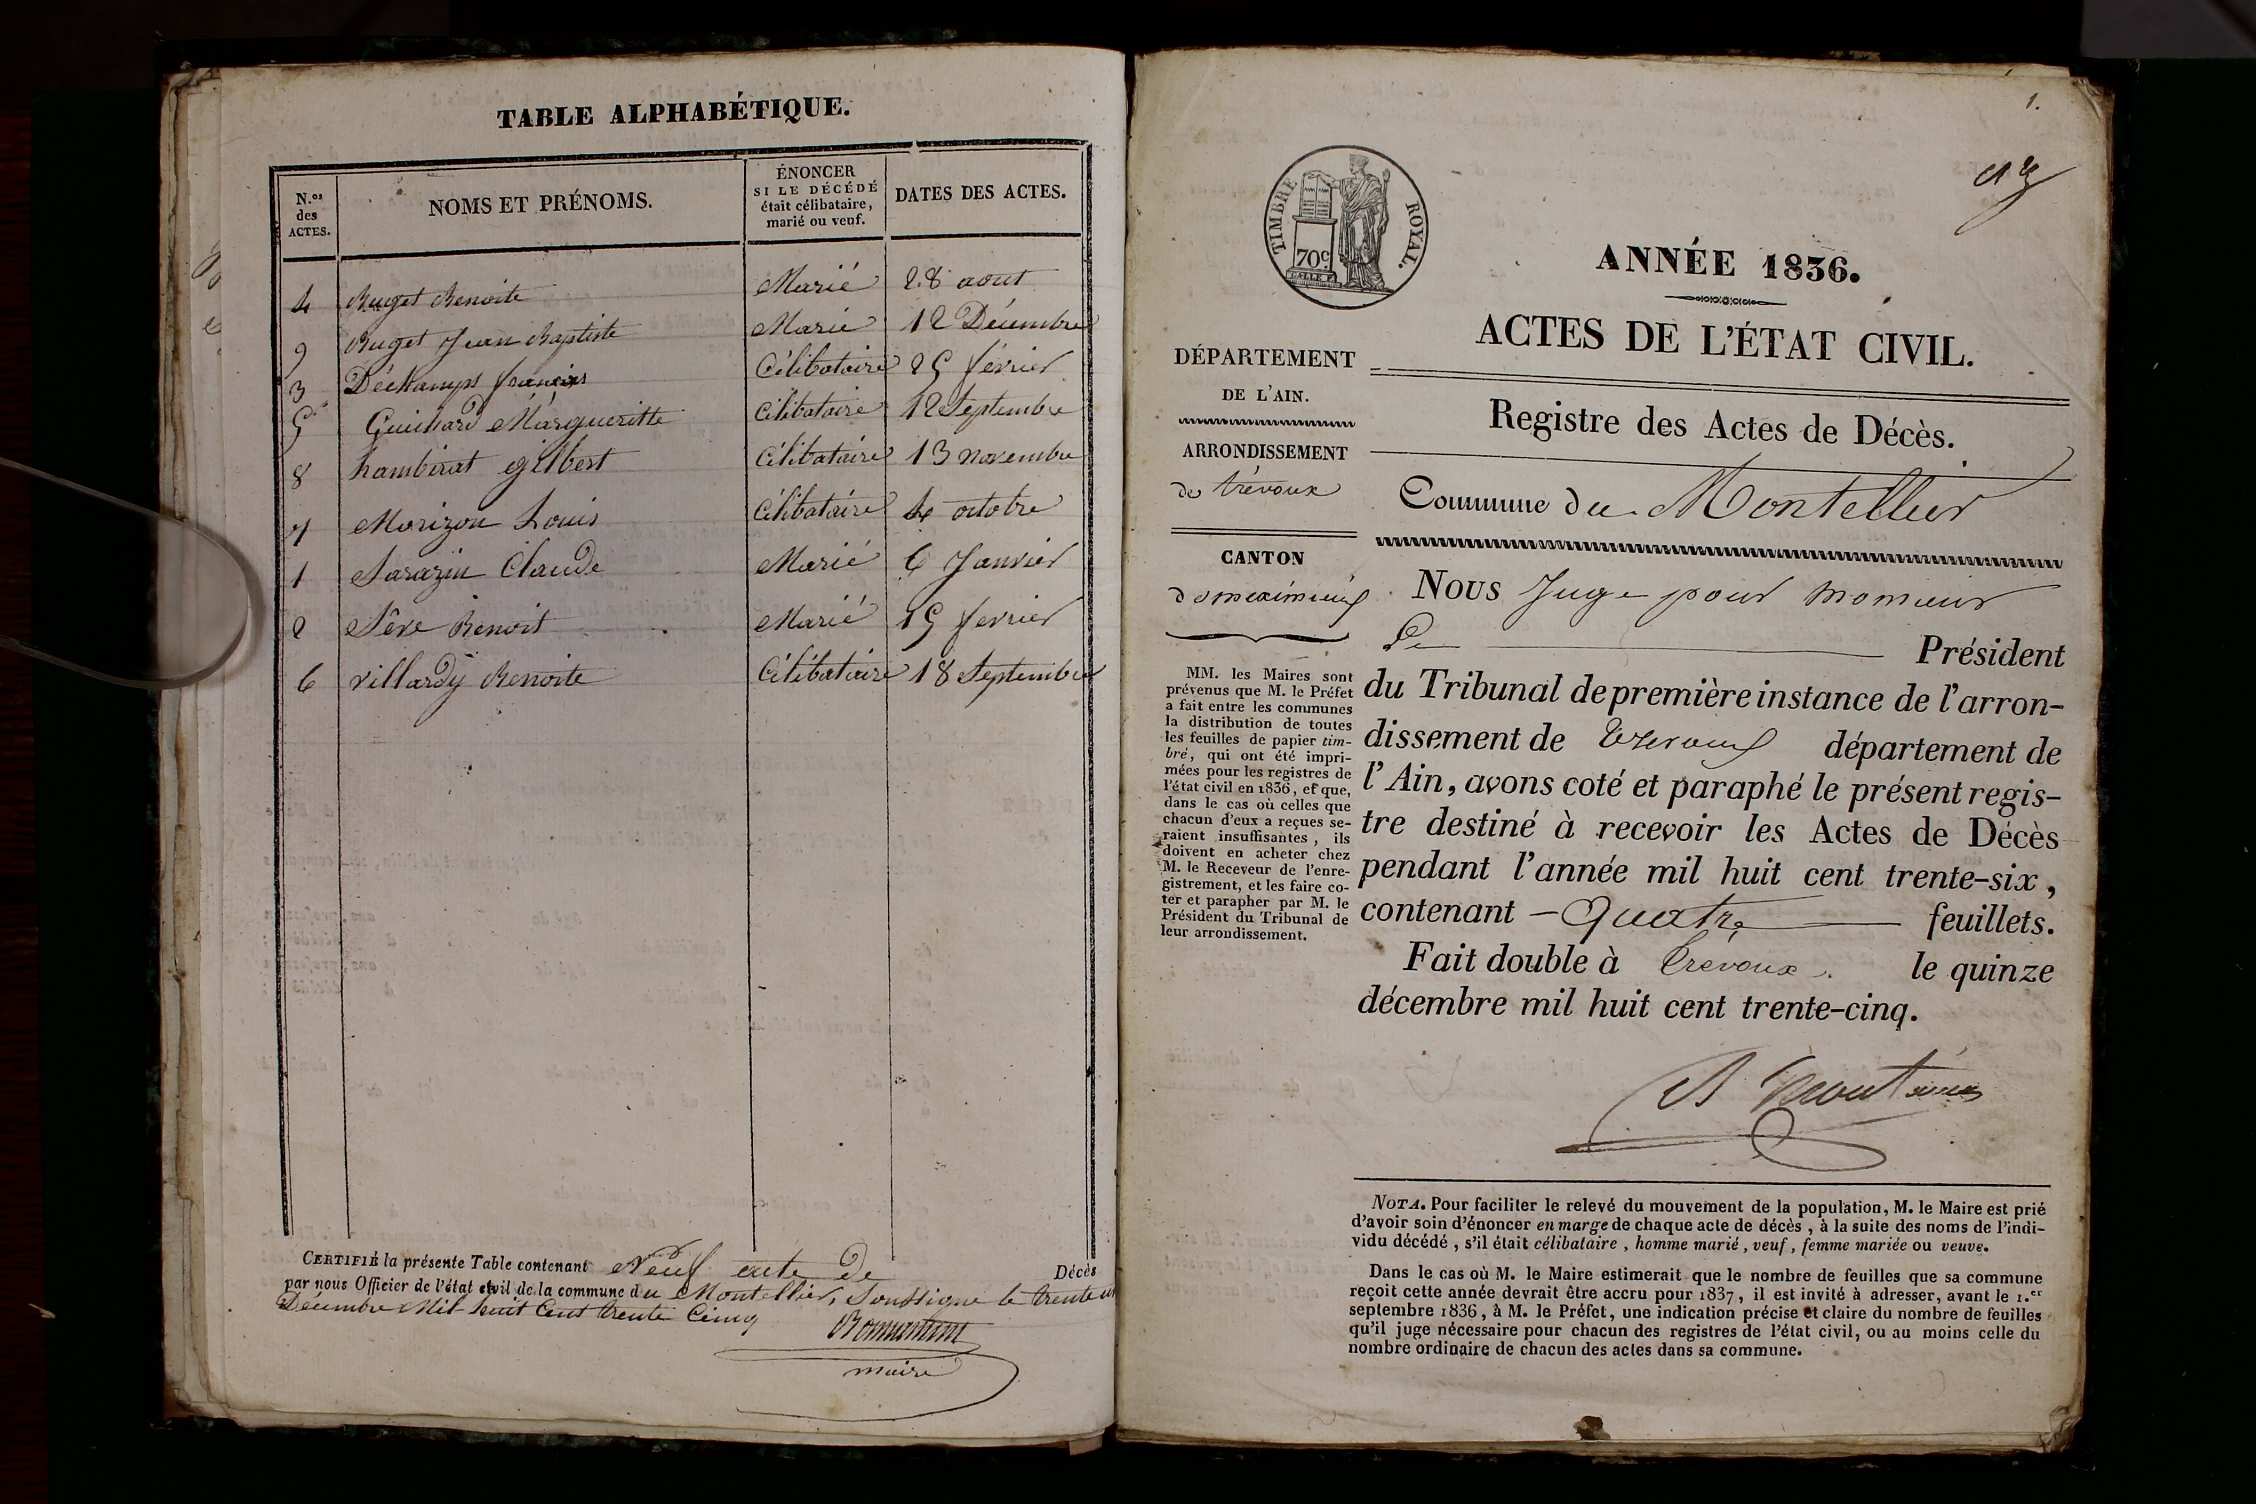 TABLE ALPHABÉTIQUE.
N.os des ACTES.
NOMS ET PRÉNOMS.
ÉNONCER SI LE DÉCÉDÉ était célibataire, marié ou veuf.
DATES DES ACTES.
4 Buget Benoite Marié 28 aout
9 Buget Jean Baptiste Marié 12 Décembre
3 Déchamps francois Célibataire 25 février
5 Guichard Margueritte Célibataire 12 Septembre
8 Lambirat gilbert Célibataire 13 novembre
7 Morizon Louis Célibataire 4 octobre
1 Sarazin Claude Marié 6 Janvier
2 Sêve Benoit Marié 15 fevrier
6 villardy Benoite Célibataire 18 Septembre
CERTIFIÉ la présente Table contenant Neuf acte de Décès
par nous Officier de l'état civil de la commune du Montellier, Soussigné le trente un
Décembre Mil huit Cent trente Cinq
maire
1.
TIMBRE ROYAL.
70c.
ANNÉE 1836.
ACTES DE L'ÉTAT CIVIL.
DÉPARTEMENT
DE L'AIN.
ARRONDISSEMENT
de trévoux
CANTON
de meximieux
MM. les Maires sont
prévenus que M. le Préfet
a fait entre les communes
la distribution de toutes
les feuilles de papier tim-
bré, qui ont été impri-
mées pour les registres de
l'état civil en 1836, et que,
dans le cas où celles que
chacun d'eux a reçues se-
raient insuffisantes, ils
doivent en acheter chez
M. le Receveur de l'enre-
gistrement, et les faire co-
ter et parapher par M. le
Président du Tribunal de
leur arrondissement.
Registre des Actes de Décès.
Commune du Montellier
NOUS Juge pour monsieur
Le Président
du Tribunal de première instance de l'arron-
dissement de trevoux département de
l'Ain, avons coté et paraphé le présent regis-
tre destiné à recevoir les Actes de Décès
pendant l'année mil huit cent trente-six,
contenant — quatre feuillets.
Fait double à trevoux. le quinze
décembre mil huit cent trente-cinq.
NOTA. Pour faciliter le relevé du mouvement de la population, M. le Maire est prié
d'avoir soin d'énoncer en marge de chaque acte de décès, à la suite des noms de l'indi-
vidu décédé, s'il était célibataire, homme marié, veuf, femme mariée ou veuve.
Dans le cas où M. le Maire estimerait que le nombre de feuilles que sa commune
reçoit cette année devrait être accru pour 1837, il est invité à adresser, avant le 1.er
septembre 1836, à M. le Préfet, une indication précise et claire du nombre de feuilles
qu'il juge nécessaire pour chacun des registres de l'état civil, ou au moins celle du
nombre ordinaire de chacun des actes dans sa commune.